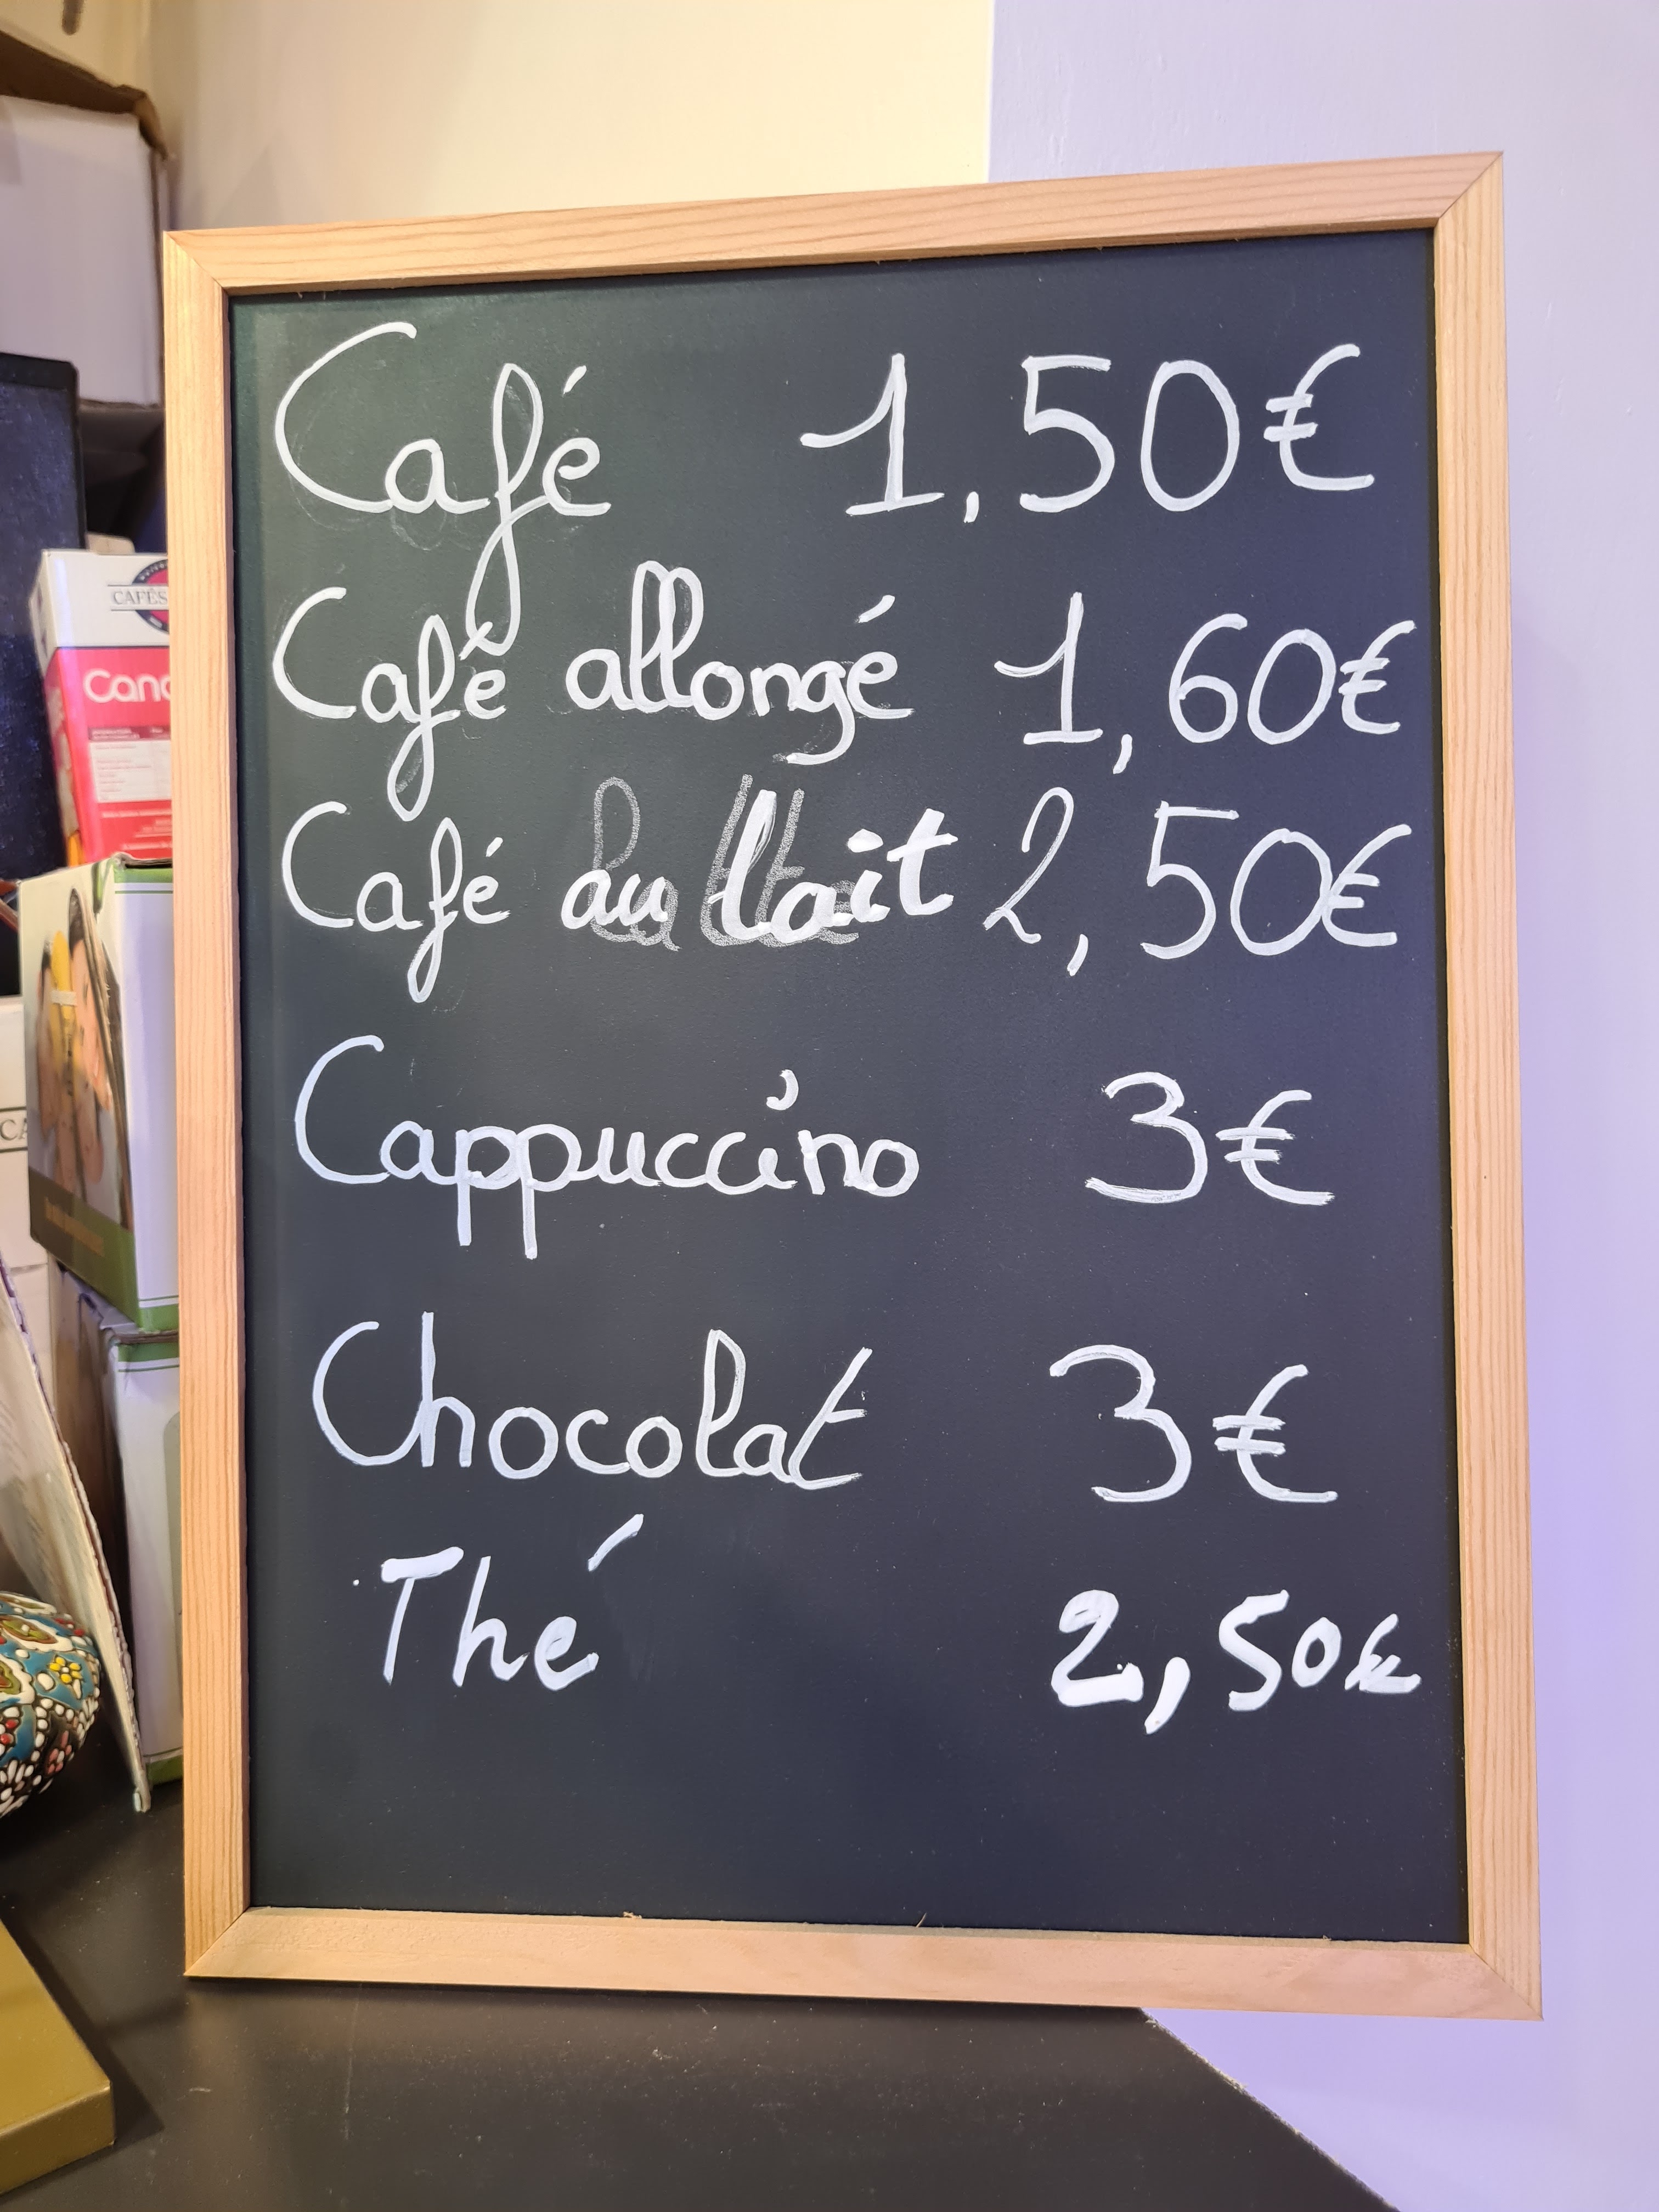 Café 1,50€
Café allongé 1,60€
Café au lait 2,50€
Cappuccino 3€
Chocolat 3€
Thé 2,50€
CAFÉS